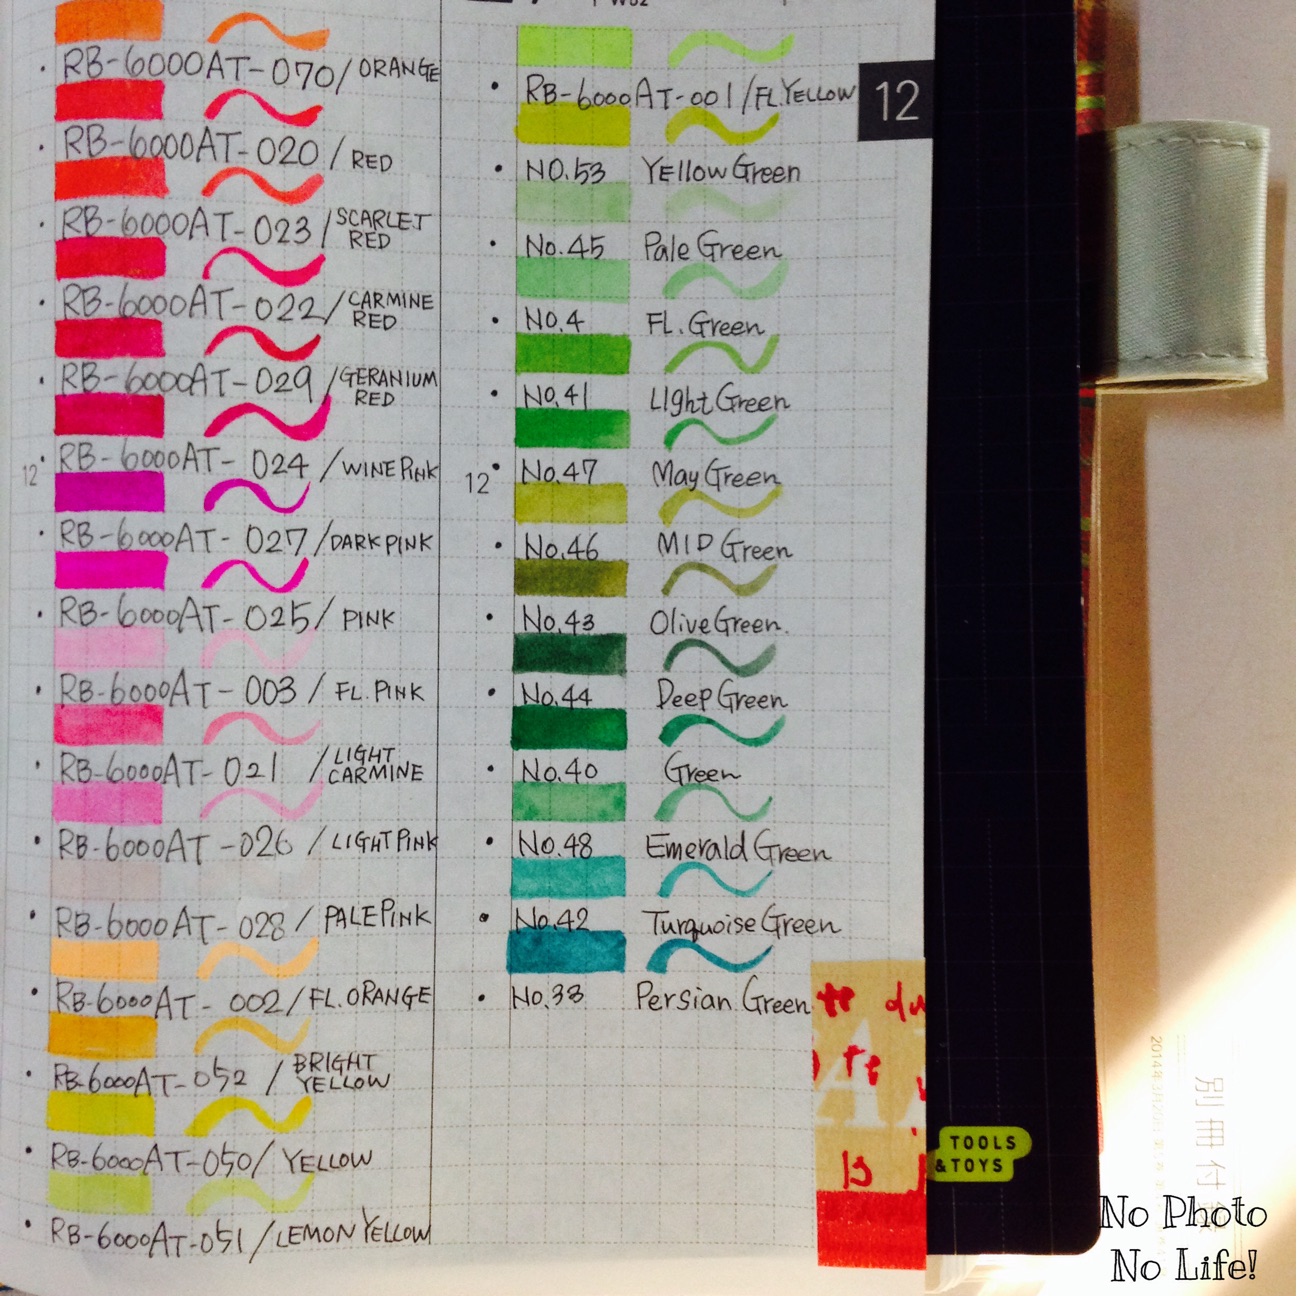 RB-6000AT-070/ORANGE
RB-6000AT-020/RED
RB-6000AT-023/SCARLET
RED
RB-6000AT-022/CARMINE
RED
RB-6000AT-029/GERANIUM
RED
12
RB-6000AT-024/WINE PINK
RB-6000AT-027/DARK PINK
RB-6000AT-025/PINK
RB-6000AT-003/FL.PINK
RB-6000AT-021/LIGHT
CARMINE
RB-6000AT-026/LIGHT PINK
RB-6000AT-028/PALE PINK
RB-6000AT-002/FL.ORANGE
RB-6000AT-052/BRIGHT
YELLOW
RB-6000AT-050/YELLOW
RB-6000AT-051/LEMON YELLOW
RB-6000AT-001/FL.YELLOW
12
NO.53 Yellow Green
No.45 Pale Green
NO.4 FL.Green
No.41 LIght Green
12
No.47 May Green
No.46 MID Green
No.43 Olive Green.
No.44 Deep Green
No.40 Green
No.48 Emerald Green
No.42 Turquoise Green
No.38 Persian Green
TOOLS
&TOYS
別冊付録
No Photo
No Life!